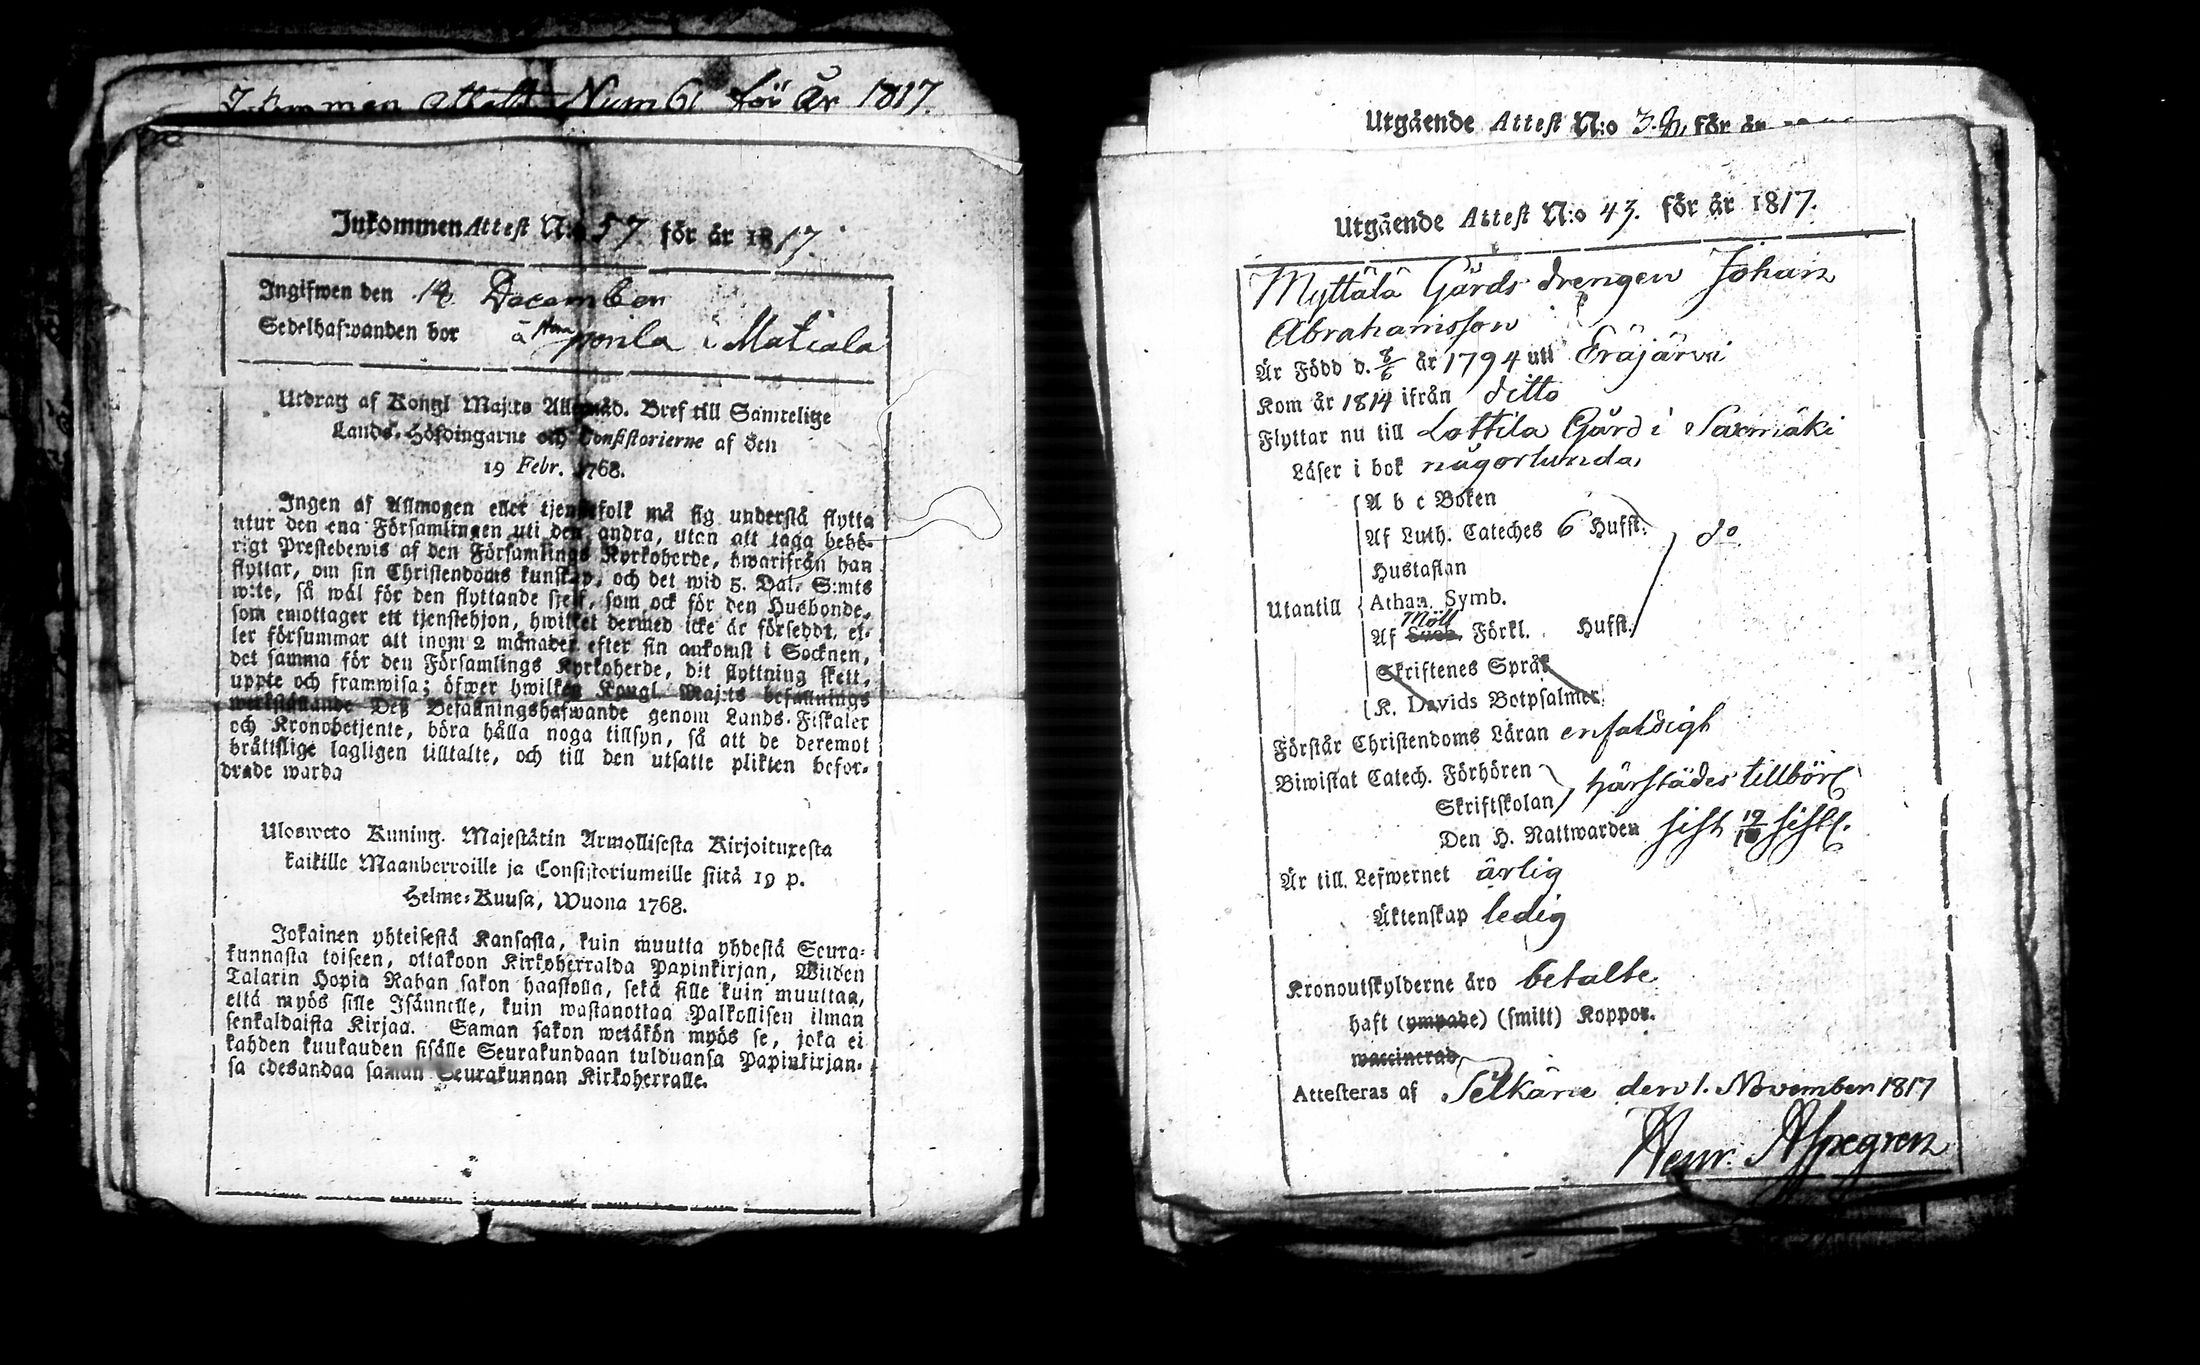 Inkommen attest Num 61 för År 1817.
Inkommen Attest N:o 57 för år 1817.
Ingifwen den 14 December
Sedelhafwanden bor å Anponila i Matiala
Utdrag af Kongl Maj:ts Allernåd. Bref till Samtelige
Lands-Höfdingarne och Consistorierne af den
19 Febr. 1768.
Ingen af Allmogen eller tjenstefolk må sig understå flytta
utur den ena Församlingen uti den andra, utan att taga behö-
rigt Prestebewis af den Församlings Kyrkoherde, hwarifrån han
flyttar, om sin Christendoms kunskap, och det wid 5. Dal. S:mts
wite, så wäl för den flyttande sjelf, som ock för den Husbonde,
som emottager ett tjenstehjon, hwilket dermed icke är försedt, el-
ler försummar att inom 2 månader efter sin ankomst i Socknen,
det samma för den Församlings Kyrkoherde, dit flyttning skett,
uppte och framwisa; öfwer hwilken Kongl. Maj:ts befallnings
werkställande Deß Befallningshafwande genom Lands-Fiskaler
och Kronobetjente, böra hålla noga tillsyn, så att de deremot
bråttslige lagligen tilltalte, och till den utsatte plikten befor-
drade warda
Uloswеto Kuning. Majestätin Armollisesta Kirjoituxesta
kaikille Maanherroille ja Consistoriumeille siitä 19 p.
Helme-Kuusa, Wuona 1768.
Jokainen yhteisestä Kansasta, kuin muutta yhdestä Seura-
kunnasta toiseen, ottakoon Kirkoherralda Papinkirjan, Wiiden
Talarin Hopia Rahan sakon haastolla, sekä sille kuin muuttaa,
että myös sille Isännelle, kuin wastanottaa Palkollisen ilman
senkaldaista Kirjaa. Saman sakon wetäkön myös se, joka ei
kahden kuukauden sisälle Seurakundaan tulduansa Papinkirjan-
sa edesandaa saman Seurakunnan Kirkoherralle.
Utgående Attest N:o för år
Utgående Attest N:o 43. för år 1817.
Myttälä Gårds drengen Johan
Abrahamsson
Är Född d. 8/6 år 1794 uti Eräjärvi
Kom år 1814 ifrån ditto
Flyttar nu till Lottila Gård i Saxmäki
Läser i bok någorlunda,
A b c Boken
Af Luth. Cateches 6 Hufst. do
Hustaflan
Utantill Athan. Symb.
Möll
Af Sueb. Förkl. Hufst.
Skriftenes Språk
K. Davids Botpsalmer.
Förstår Christendoms Läran enfaldigt
Biwistat Catech. Förhören
Skriftskolan härstädes tillbörl.
Den H. Nattwarden sist 19/10 sistl.
Är till. Lefwernet ärlig
Äktenskap ledig
Kronoutskylderne äro betalte
haft (ympade) (smitt) Koppor.
waccinerad
Attesteras af Selkäne den 1. November 1817
Henr. Aspegren